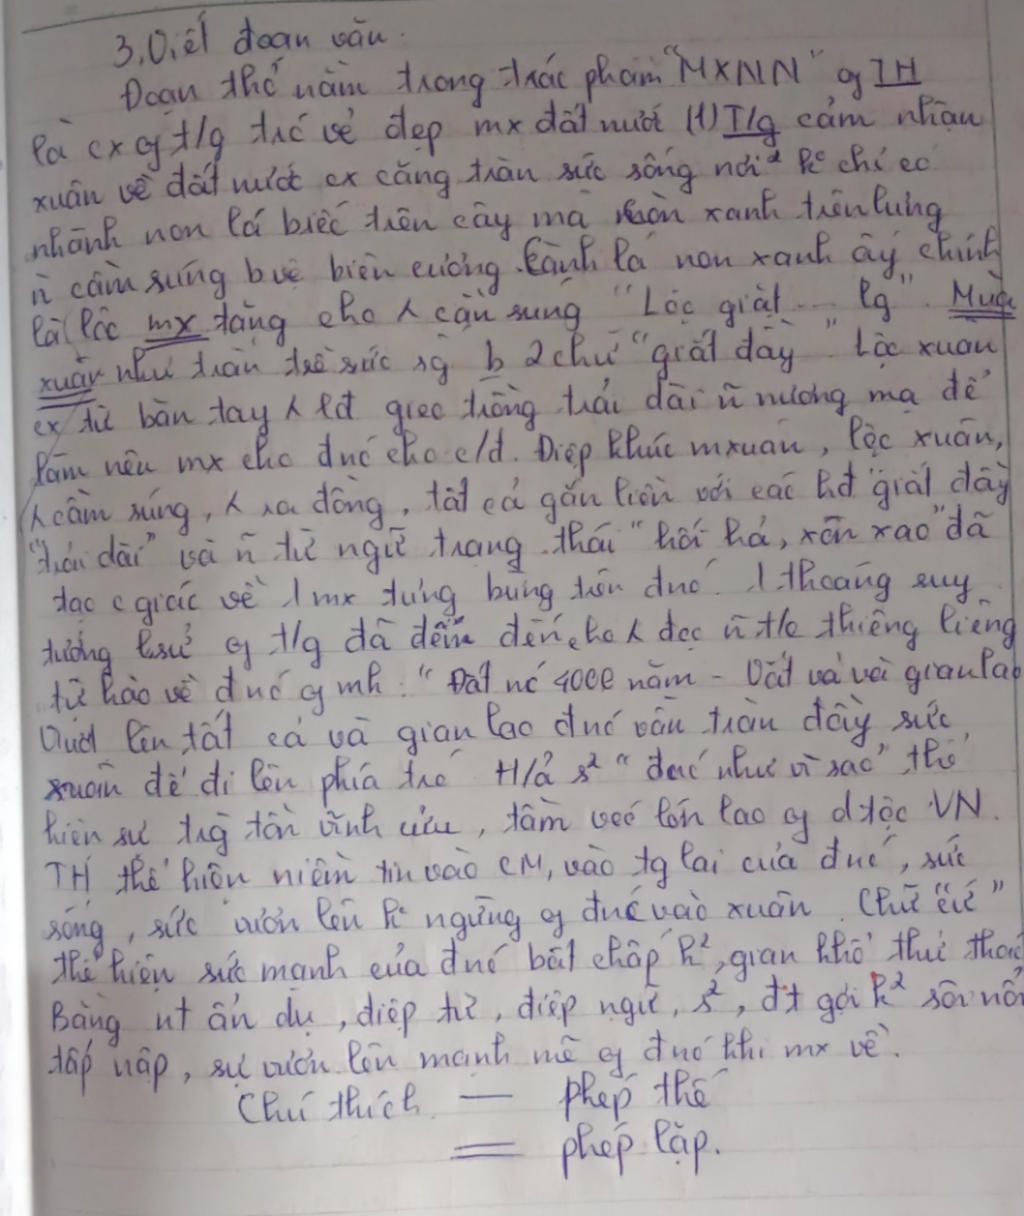 3. Viết đoạn văn.
Đoạn thơ nằm trong tác phẩm "MXNN" of TH
là cx of t/g trc vẻ đẹp mx đất nước (1) T/g cảm nhận
xuân về đất nước cx căng tràn sức sống nơi² k° chỉ có
nhành non lá biếc trên cây mà còn xanh trên lưng
ñ cầm súng bvệ biên cương. Cành lá non xanh ấy chính
là lộc mx tặng cho λ cầm súng "Lộc giắt ... lg". Mùa
xuân như tràn trề sức sg b 2 chữ "giắt đầy" Lộc xuân
cx từ bàn tay λ lđ gieo trồng trải dài ñ nương mạ để
làm nên mx cho đnc cho c/đ. Điệp khúc mxuân, lộc xuân,
λ cầm súng, λ ra đồng, tất cả gắn liền với các hđ "giắt đầy
"trải dài" và ñ từ ngữ trạng thái "hối hả, xôn xao" đã
tạo c giác về 1 mx tưng bừng trên đnc. 1 thoáng suy
tưởng lsử of t/g đã đem đến cho λ đọc ñ t/c thiêng liêng
tự hào về đnc of mh: "Đất nc 4000 năm - Vất vả và gian lao
Vượt lên tất cả và gian lao đnc vẫn tràn đầy sức
xuân để đi lên phía trc H/ả s² "đnc như vì sao" thể
hiện sự trg tồn vĩnh cửu, tầm vóc lớn lao of dtộc VN.
TH thể hiện niềm tin vào CM, vào tg lai của đnc, sức
sống, sức vươn lên k° ngừng of đnc vào xuân. Chữ "cứ"
thể hiện sức mạnh của đnc bất chấp k², gian khổ thử thách
Bằng nt ẩn dụ, điệp từ, điệp ngữ, s², đt gợi k² sôi nổi
tấp nập, sự vươn lên mạnh mẽ of đnc khi mx về.
Chú thích — phép thế
═ phép lặp.